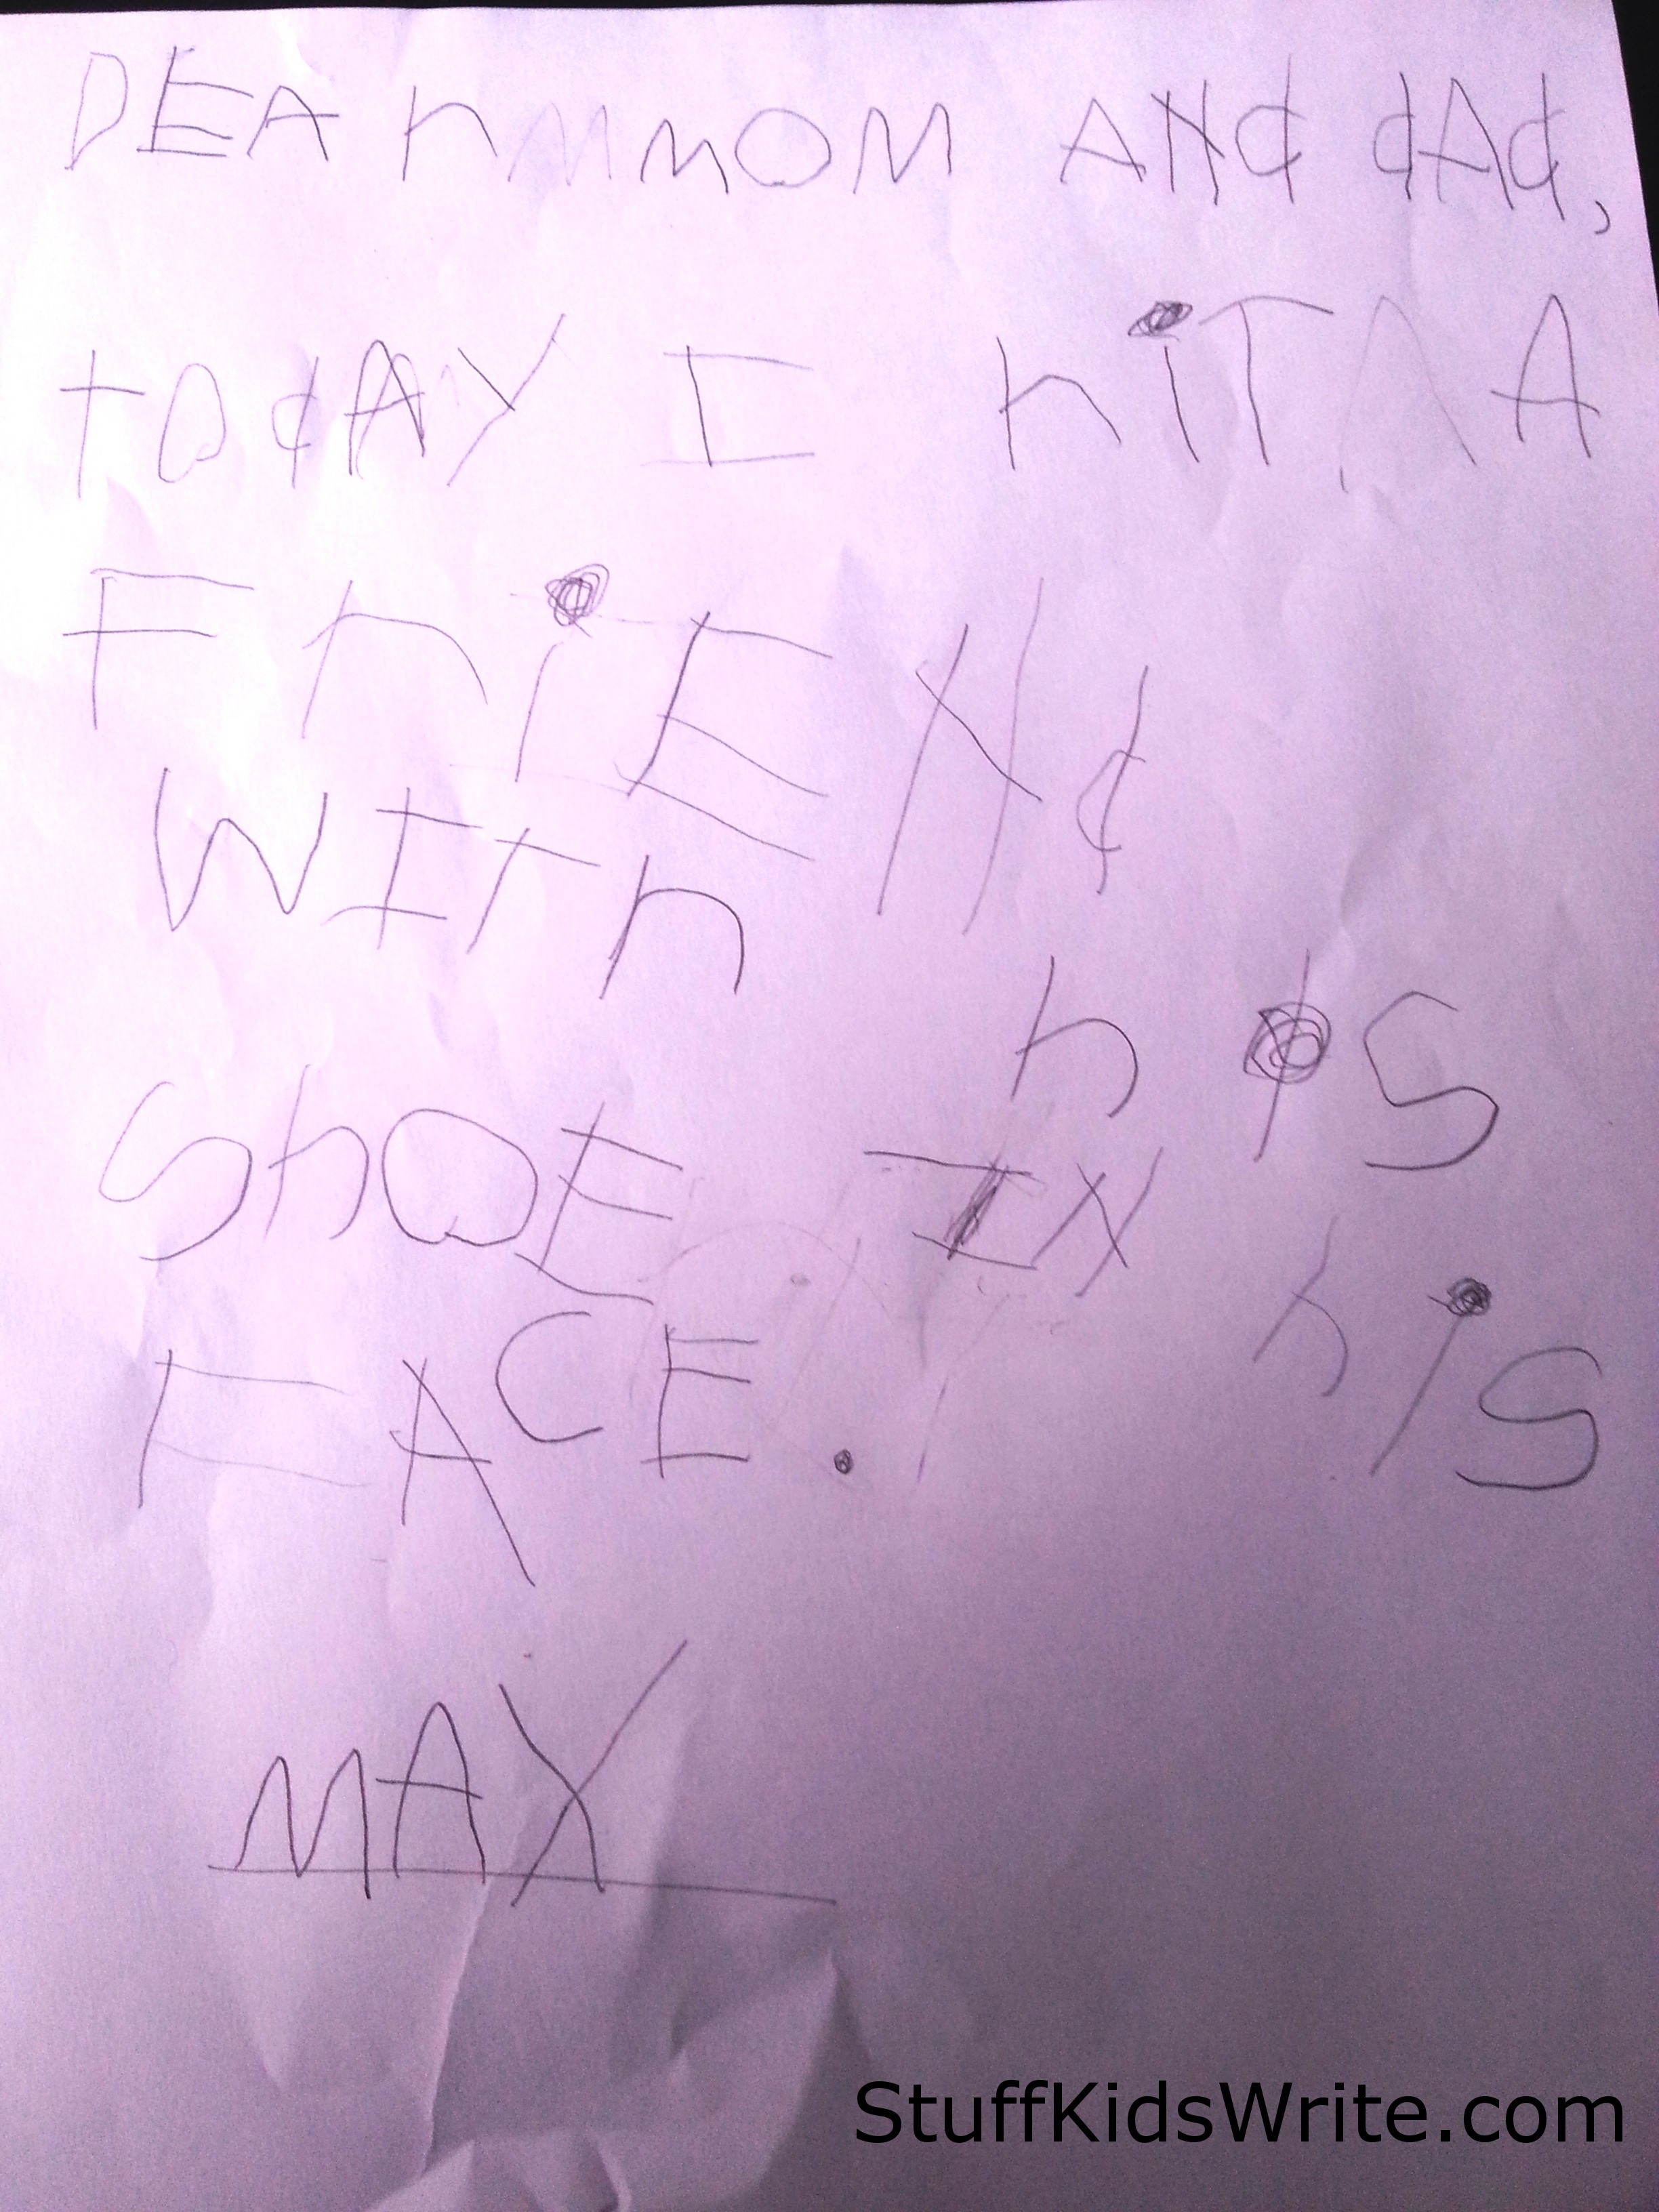 DEAr mmOM ANd dAd,
todAY I hiT A
FriENd
WITh his
ShOE IN his
FACE.
MAX
StuffKidsWrite.com